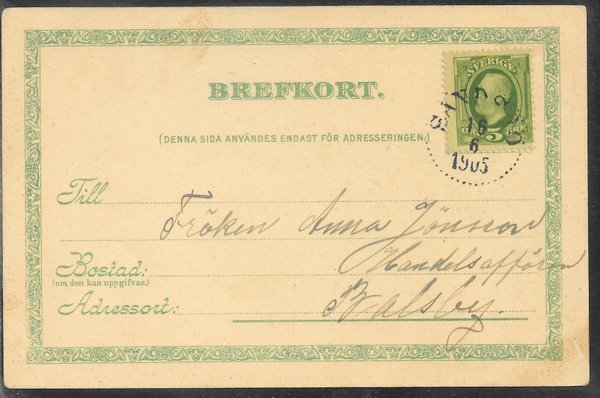 BREFKORT.
SVERIGE
(DENNA SIDA ANVÄNDES ENDAST FÖR ADRESSERINGEN.)
5
16
6
1905
Till Fröken Anna Jönsson
Bostad: Handelsaffären
(om den kan uppgifvas.)
Adressort: Balsby.